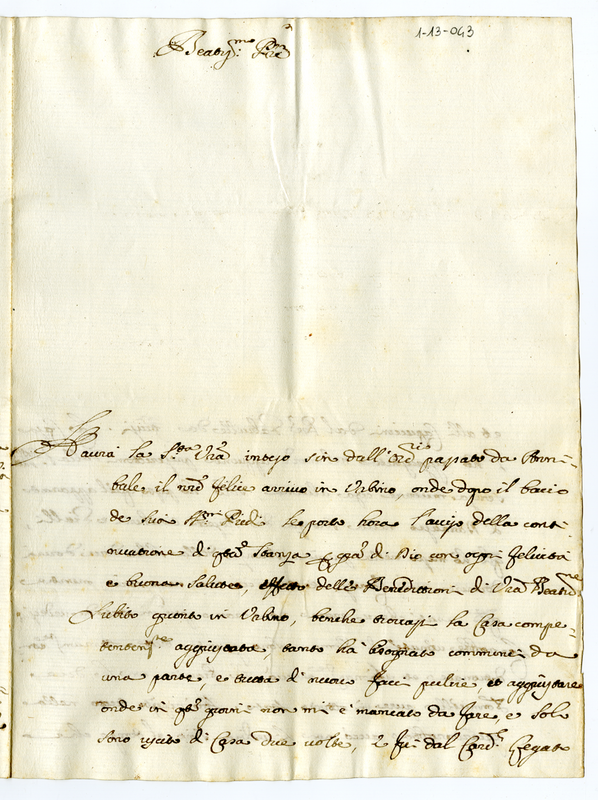 1-13-043
Beatis.mo Pre
Havrà la S.tà Vrã inteso sin dall' ord.rio passato da Anni-
bale il nrõ felice arrivo in Urbino, onde dopo il bacio
de suoi S.mi Piedi le porto hora l'aviso della conti-
nuatione di qtã stanza p grã di Dio con ogni felicità
e buona salute, effetto delle Benedittioni di Vrã Beat.ne
Subito gionto in Urbino, benche trovassi la Casa compe-
tentem.te aggiustata, tanto hà bisognato
una parte, e tutta di nuovo farci pulire, et aggiustare
onde in qti giorni non mi è mancato da fare, e solo
sono uscito di Casa due volte, e fui dal Card.l Legato